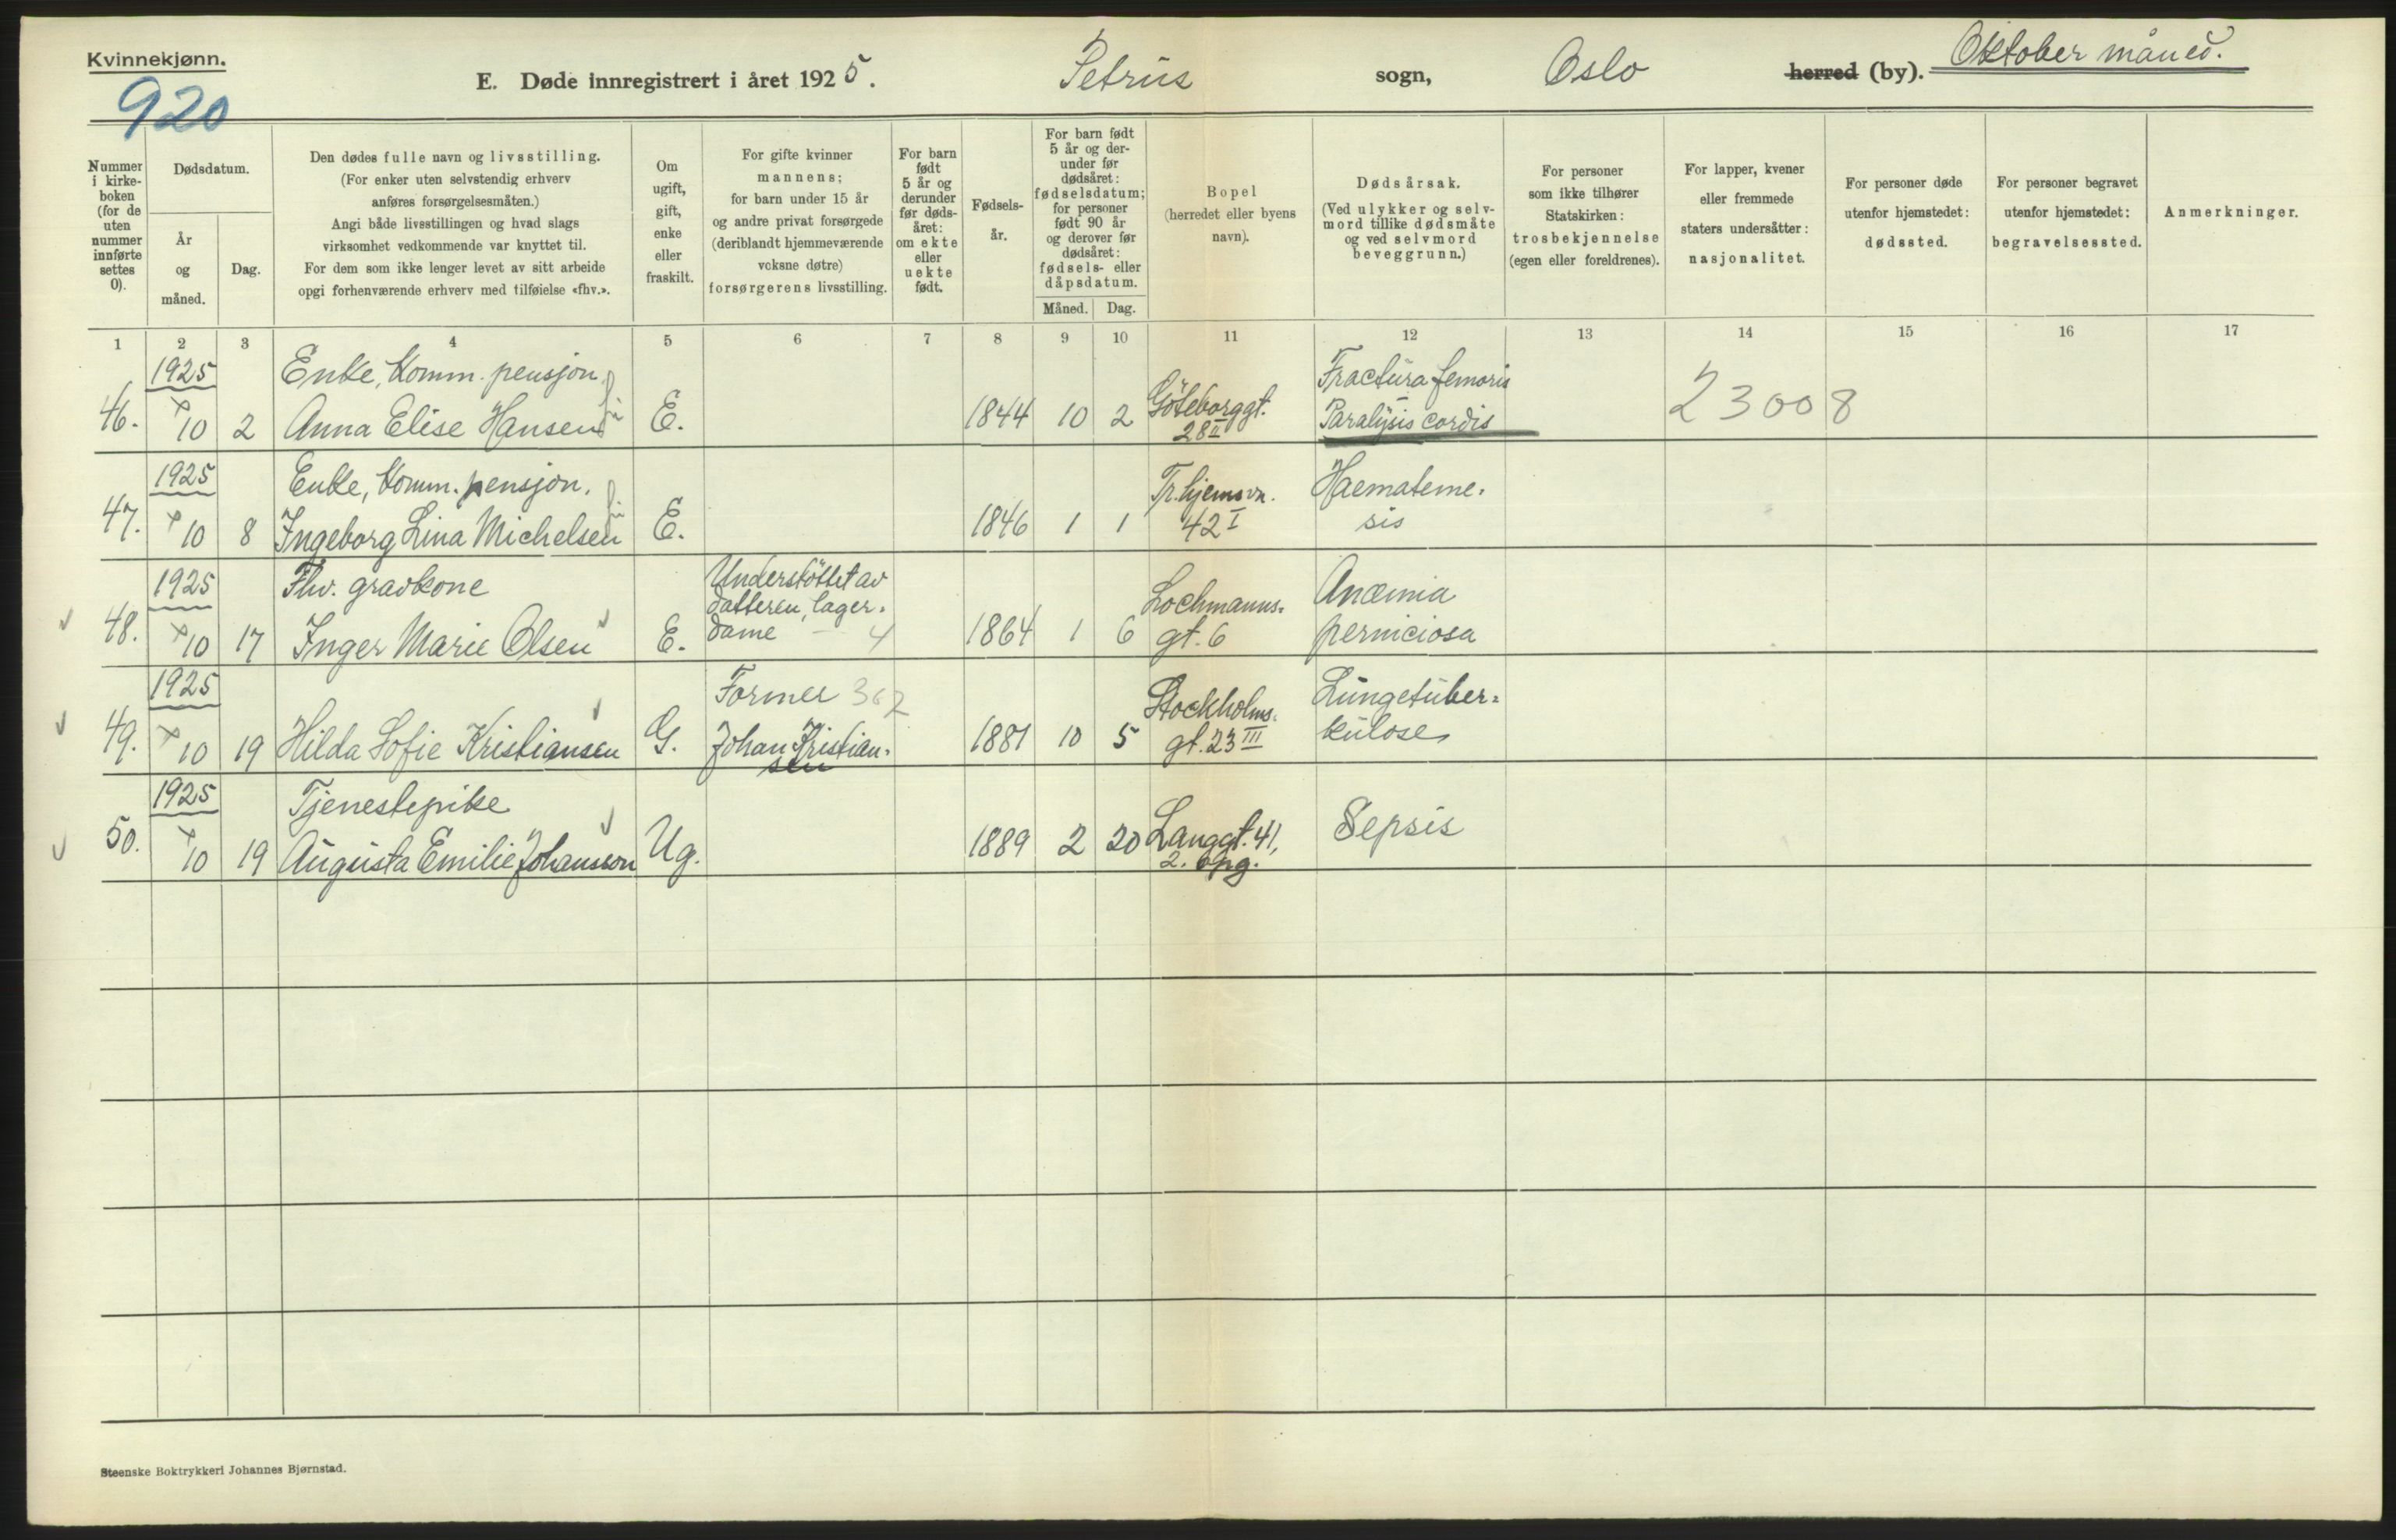 Kvinnekjønn.
920
E. Døde innregistrert i året 1925. Petrus sogn, Oslo herred (by). Oktober måned.
Nummer i kirke-boken (for de uten nummer innførte settes 0).
Dødsdatum.
År og måned.
Dag.
Den dødes fulle navn og livsstilling.
(For enker uten selvstendig erhverv
anføres forsørgelsesmåten.)
Angi både livsstillingen og hvad slags
virksomhet vedkommende var knyttet til.
For dem som ikke lenger levet av sitt arbeide
opgi forhenværende erhverv med tilføielse «fhv.».
Om ugift, gift, enke eller fraskilt.
For gifte kvinner
mannens;
for barn under 15 år
og andre privat forsørgede
(deriblandt hjemmeværende
voksne døtre)
forsørgerens livsstilling.
For barn født 5 år og derunder før døds-året: om ekte eller uekte født.
Fødsels-år.
For barn født
5 år og der-
under før
dødsåret:
fødselsdatum;
for personer
født 90 år
og derover før
dødsåret:
fødsels- eller
dåpsdatum.
Måned. Dag.
Bopel
(herredet eller byens
navn).
Dødsårsak.
(Ved ulykker og selv-
mord tillike dødsmåte
og ved selvmord
beveggrunn.)
For personer
som ikke tilhører
Statskirken:
trosbekjennelse
(egen eller foreldrenes).
For lapper, kvener
eller fremmede
staters undersåtter:
nasjonalitet.
For personer døde
utenfor hjemstedet:
dødssted.
For personer begravet
utenfor hjemstedet:
begravelsessted.
Anmerkninger.
1 2 3 4 5 6 7 8 9 10 11 12 13 14 15 16 17
1925 Enke, komm. pensjon. Fractura femoris
46. 10 2 Anna Elise Hansen E. 1844 10 2 Göteborggt. 28 II Paralysis cordis 23008
1925 Enke, komm. pensjon. Tr.hjemsvn. Haemateme-
47. 10 8 Ingeborg Lina Michelsen E. 1846 1 1 42 I sis
1925 Fhv. gravkone Understöttet av datteren, lager- Lochmanns- Anæmia
48. 10 17 Inger Marie Olsen E. dame 4 1864 1 6 gt. 6 perniciosa
1925 Former 362 Stockholms- Lungetuber-
49. 10 19 Hilda Sofie Kristiansen G. Johan Kristian-sen 1881 10 5 gt. 23 III kulose
1925 Tjenestepike
50. 10 19 Augusta Emilie Johansson Ug. 1889 2 20 Langgt. 41, 2. opg. Sepsis
Steenske Boktrykkeri Johannes Bjørnstad.